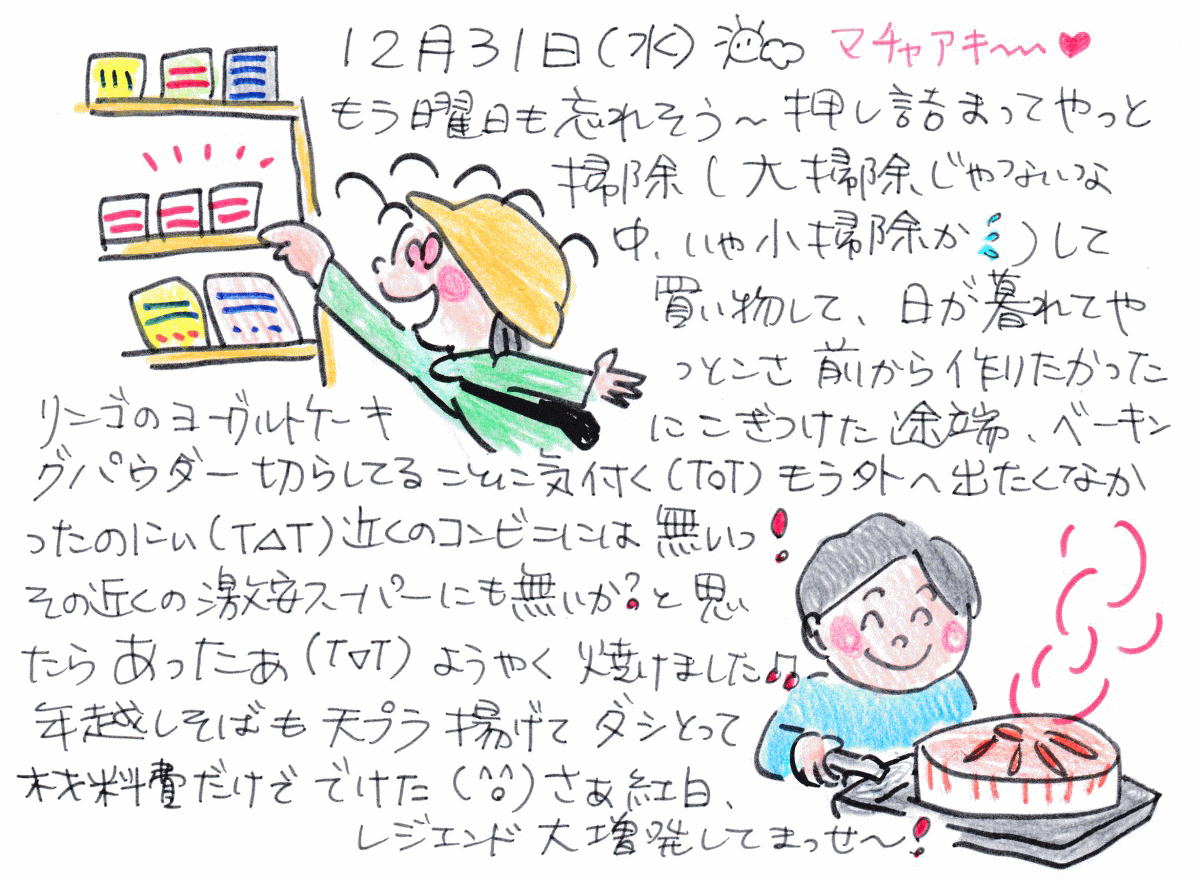 12月31日(水) マチャアキ〜〜❤
もう曜日も忘れそう〜押し詰まってやっと
掃除(大掃除じゃないな
中、いや小掃除か)して
買い物して、日が暮れてや
っとこさ前から作りたかった
リンゴのヨーグルトケーキ
にこぎつけた途端、ベーキン
グパウダー切らしてることに気付く(ToT)もう外へ出たくなか
ったのにぃ(T△T)近くのコンビニには無いっ!
その近くの激安スーパーにも無いか?と思い
たらあったあ(T▽T)ようやく焼けました♫
年越しそばも天プラ揚げてダシとって
材料費だけででけた(^o^)さぁ紅白、
レジエンド大増発してまっせ〜!